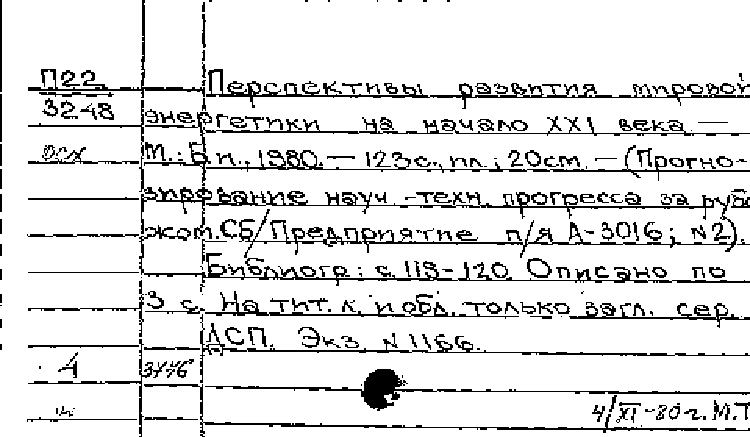 П22
3248
осх
Перспективы развития мировой
энергетики на начало XXI века —
М.: Б и., 1980. — 123с., ил.; 20см. — (Прогно-
зирование науч.-техн. прогресса за рубе
жом. Сб/Предприятие п/я А-3016; N2).
Библиогр: с 118-120. Описано по
3 с. На тит. л. и обл. только загл. сер.
ДСП. Экз. N 1166.
A
3446
4/XI-80г. М.Т